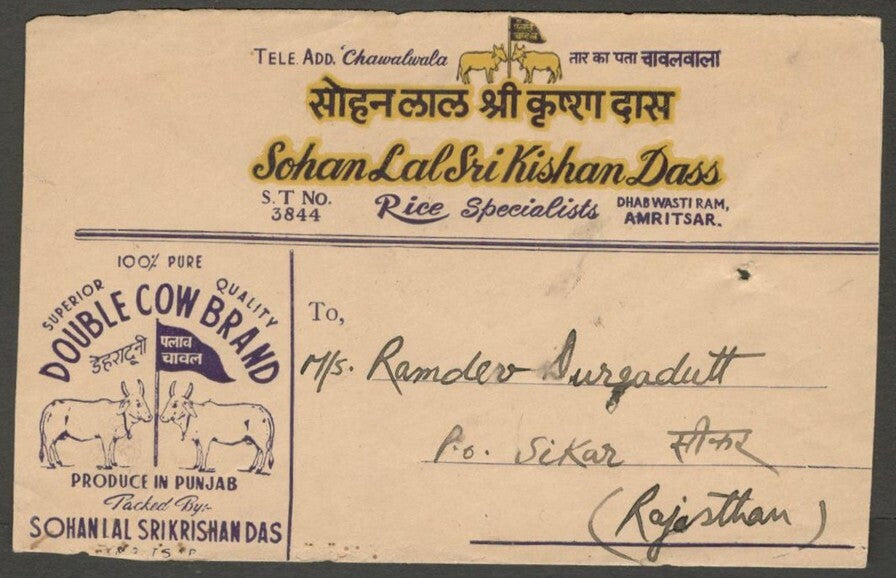 पलाव
चावल
TELE. ADD. 'Chawalwala
तार का पता चावलवाला
सोहन लाल श्री कृष्ण दास
Sohan Lal Sri Kishan Dass
S.T No.
3844
Rice Specialists
DHAB WASTI RAM,
AMRITSAR.
100% PURE
SUPERIOR QUALITY
DOUBLE COW BRAND
डेहरादूनी
पलाव
चावल
PRODUCE IN PUNJAB
Packed By:-
SOHAN LAL SRI KRISHAN DAS
To,
M/s. Ramdev Durgadutt
P.o. Sikar सीकर
(Rajasthan)